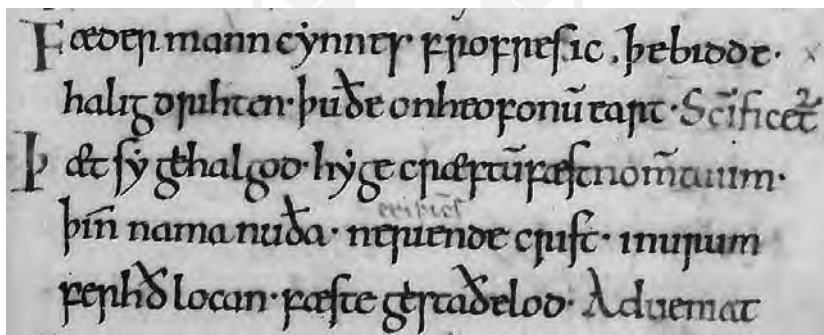 Fæder manncẏnnes frofres ic . þe bidde ·
halig drihten · þu ðe on heofonū eart · Sc̄ificet̄
Þæt sẏ gehalgod · hẏge cræftū fæst nom̄ tuum ·
þin nama nu ða · neriende crist · in urum
ferhð locan · fæste gestaðelod · Adueniat